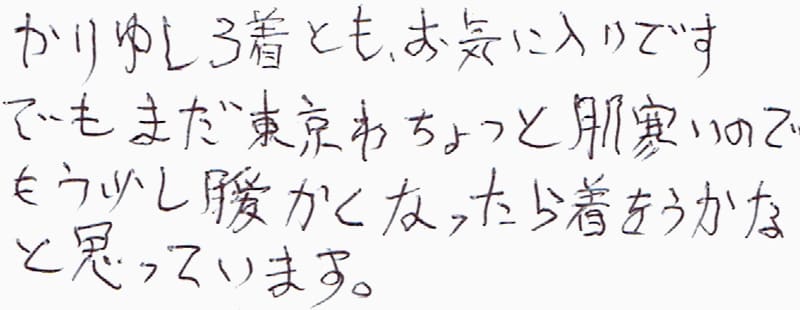 かりゆし3着とも、お気に入りです
でもまだ東京わちょっと肌寒いので
もう少し暖かくなったら着をうかな
と思っています。